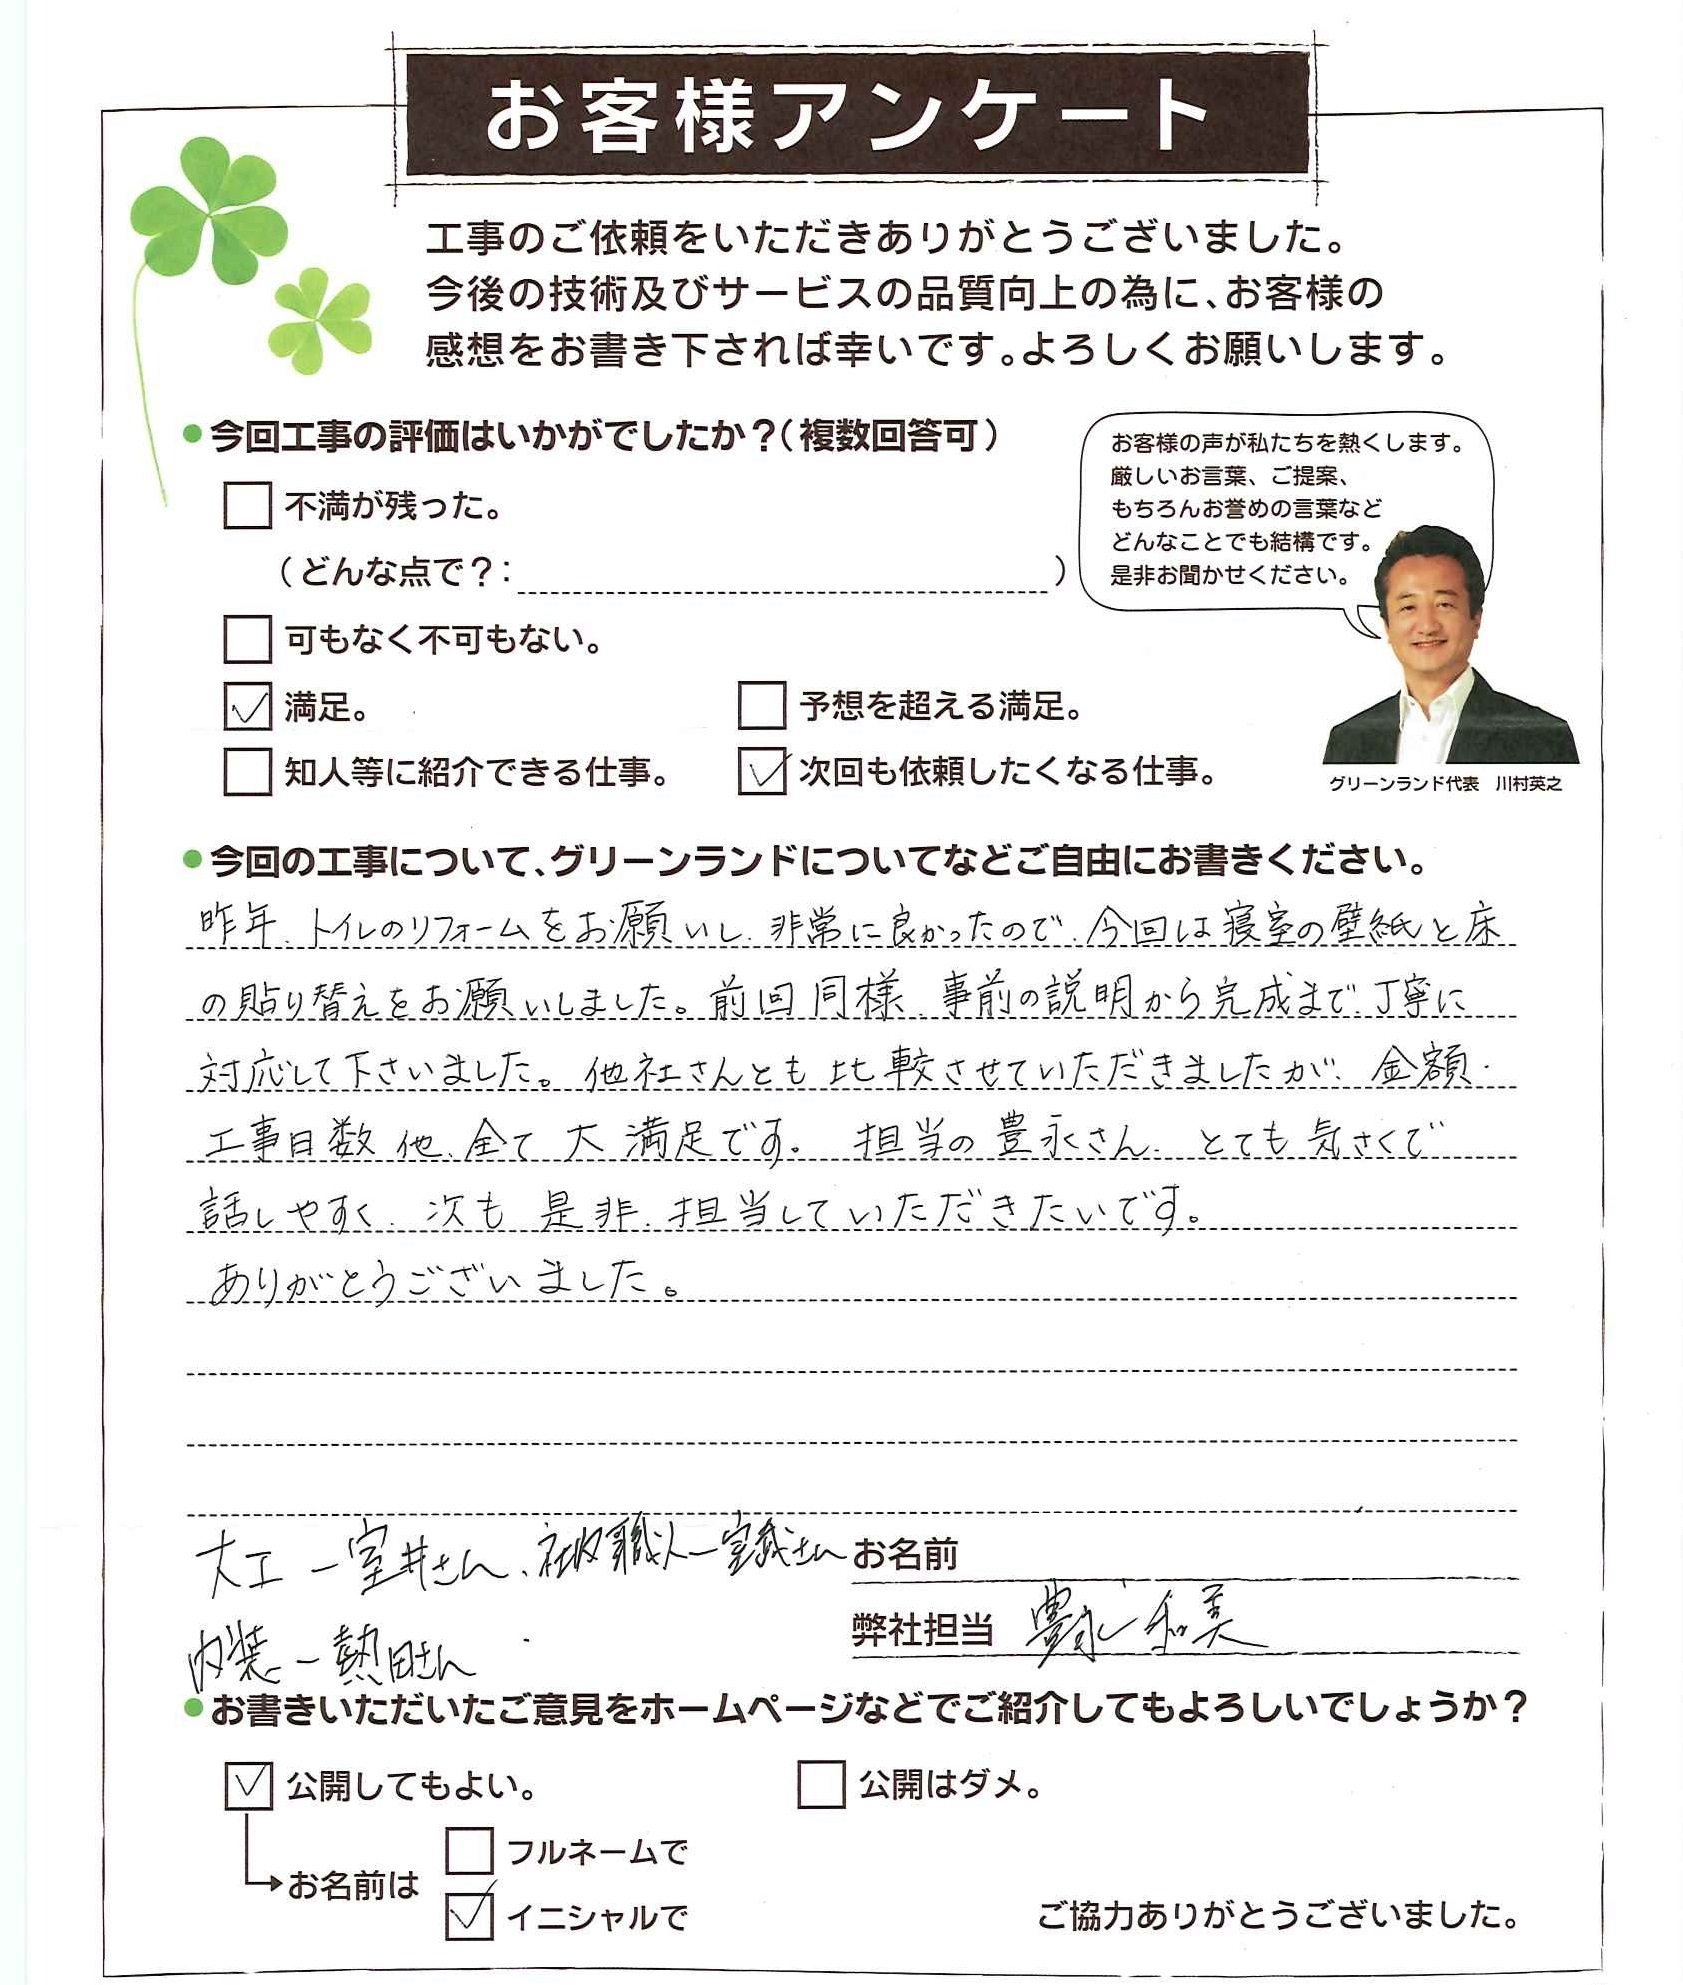 お客様アンケート
工事のご依頼をいただきありがとうございました。
今後の技術及びサービスの品質向上の為に、お客様の
感想をお書き下されば幸いです。よろしくお願いします。
●今回工事の評価はいかがでしたか？（複数回答可）
不満が残った。
（どんな点で？：　　　）
可もなく不可もない。
満足。
予想を超える満足。
知人等に紹介できる仕事。
次回も依頼したくなる仕事。
お客様の声が私たちを熱くします。
厳しいお言葉、ご提案、
もちろんお誉めの言葉など
どんなことでも結構です。
是非お聞かせください。
グリーンランド代表　川村英之
●今回の工事について、グリーンランドについてなどご自由にお書きください。
昨年、トイレのリフォームをお願いし、非常に良かったので、今回は寝室の壁紙と床
の貼り替えをお願いしました。前回同様、事前の説明から完成まで、丁寧に
対応して下さいました。他社さんとも比較させていただきましたが、金額・
工事日数他、全て大満足です。担当の豊永さん、とても気さくで
話しやすく、次も是非、担当していただきたいです。
ありがとうございました。
大工ー室井さん、職人ー さん
内装ー熱田さん
お名前
弊社担当 豊永 和美
●お書きいただいたご意見をホームページなどでご紹介してもよろしいでしょうか？
公開してもよい。
公開はダメ。
お名前は
フルネームで
イニシャルで
ご協力ありがとうございました。